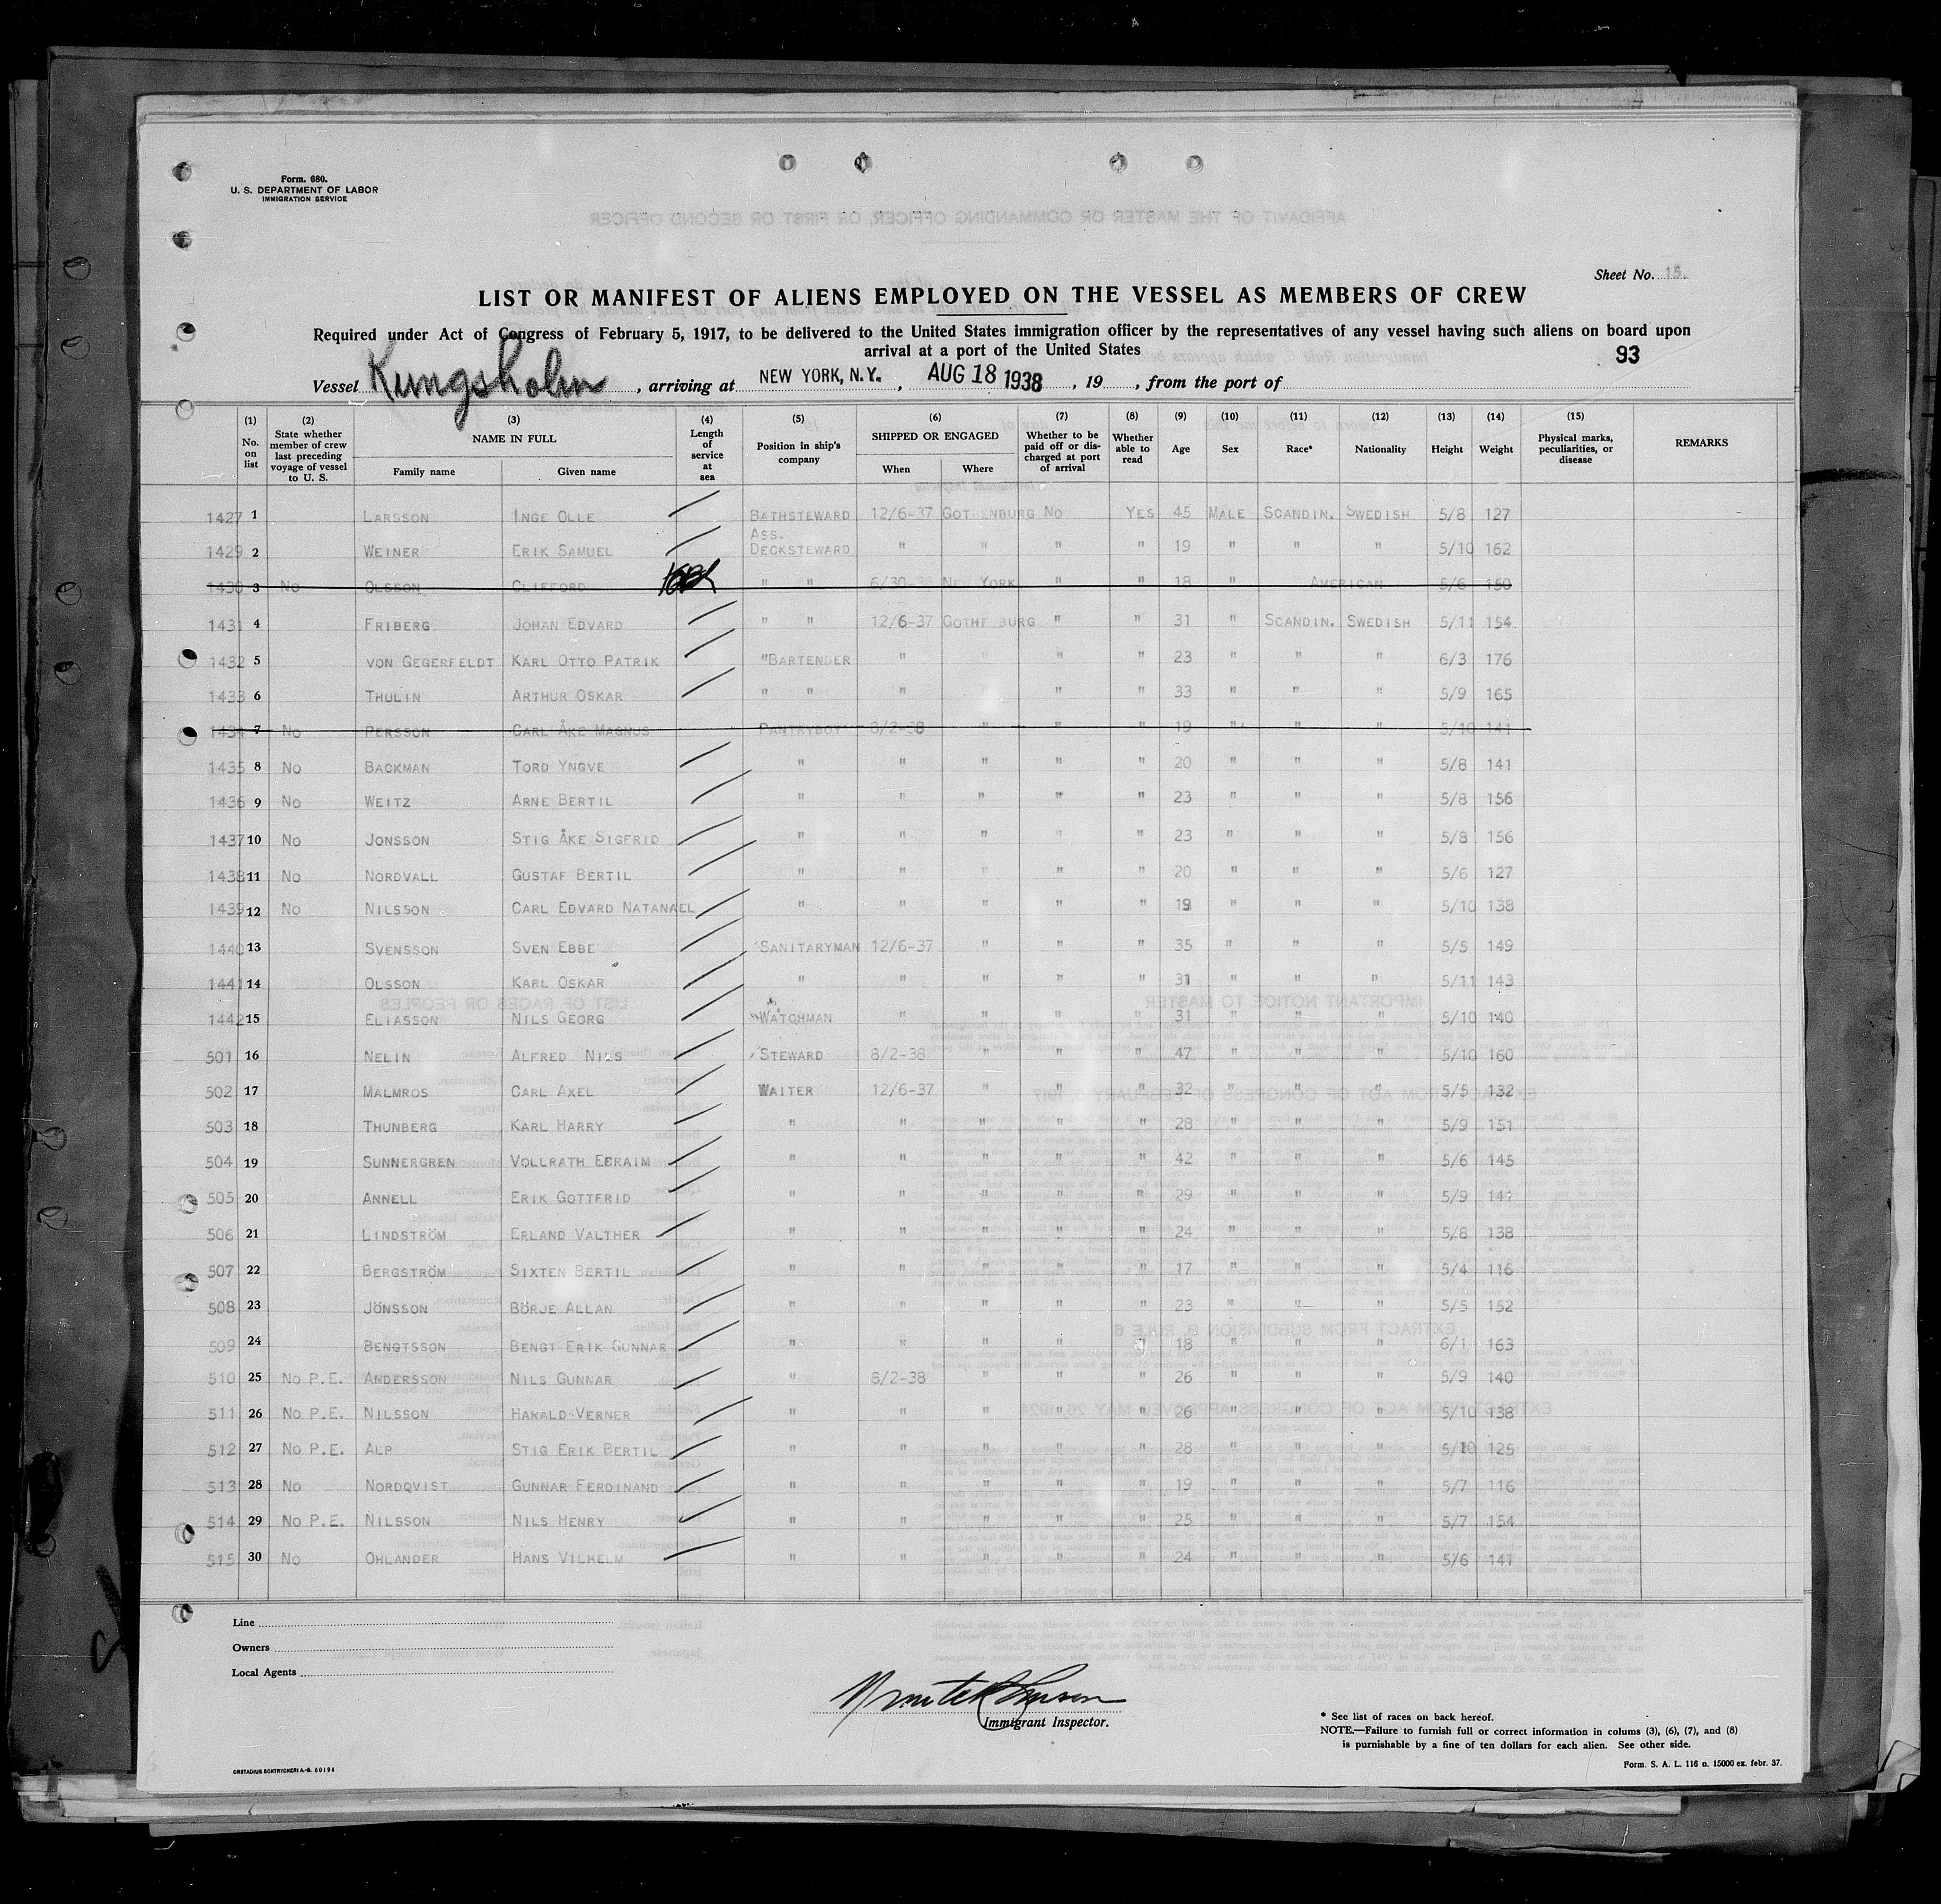 Form. 680.
U. S. DEPARTMENT OF LABOR
IMMIGRATION SERVICE
Sheet No. 15.
LIST OR MANIFEST OF ALIENS EMPLOYED ON THE VESSEL AS MEMBERS OF CREW
Required under Act of Congress of February 5, 1917, to be delivered to the United States immigration officer by the representatives of any vessel having such aliens on board upon
arrival at a port of the United States
93
Vessel Kungsholm, arriving at NEW YORK, N.Y., AUG 18 1938, 19, from the port of
(1) (2) (3) (4) (5) (6) (7) (8) (9) (10) (11) (12) (13) (14) (15)
No. on list State whether member of crew last preceding voyage of vessel to U. S. NAME IN FULL Family name Given name Length of service at sea Position in ship's company SHIPPED OR ENGAGED When Where Whether to be paid off or discharged at port of arrival Whether able to read Age Sex Race* Nationality Height Weight Physical marks, peculiarities, or disease REMARKS
1427 1 LARSSON INGE OLLE BATHSTEWARD 12/6-37 GOTHENBURG NO YES 45 MALE SCANDIN. SWEDISH 5/8 127
1429 2 WEINER ERIK SAMUEL ASS. DECKSTEWARD " " " " 19 " " " 5/10 162
1430 3 NO OLSSON CLIFFORD " " 6/30-38 NEW YORK " " 18 " AMERICAN 5/6 150
1431 4 FRIBERG JOHAN EDVARD " " 12/6-37 GOTHE BURG " " 31 " SCANDIN. SWEDISH 5/11 154
1432 5 VON GEGERFELDT KARL OTTO PATRIK "BARTENDER " " " " 23 " " " 6/3 176
1433 6 THULIN ARTHUR OSKAR " " " " " " 33 " " " 5/9 165
1434 7 NO PERSSON CARL ÅKE MAGNUS PANTRYBOY 8/2-38 " " " 19 " " " 5/10 141
1435 8 NO BACKMAN TORD YNGVE " " " " " 20 " " " 5/8 141
1436 9 NO WEITZ ARNE BERTIL " " " " " 23 " " " 5/8 156
1437 10 NO JONSSON STIG ÅKE SIGFRID " " " " " 23 " " " 5/8 156
1438 11 NO NORDVALL GUSTAF BERTIL " " " " " 20 " " " 5/6 127
1439 12 NO NILSSON CARL EDVARD NATANAEL " " " " " 19 " " " 5/10 138
1440 13 SVENSSON SVEN EBBE SANITARYMAN 12/6-37 " " " 35 " " " 5/5 149
1441 14 OLSSON KARL OSKAR " " " " " 31 " " " 5/11 143
1442 15 ELIASSON NILS GEORG WATCHMAN " " " " 31 " " " 5/10 140
501 16 NELIN ALFRED NILS STEWARD 8/2-38 " " " 47 " " " 5/10 160
502 17 MALMROS CARL AXEL WAITER 12/6-37 " " " 32 " " " 5/5 132
503 18 THUNBERG KARL HARRY " " " " " 28 " " " 5/9 151
504 19 SUNNERGREN VOLLRATH EFRAIM " " " " " 42 " " " 5/6 145
505 20 ANNELL ERIK GOTTFRID " " " " " 29 " " " 5/9 141
506 21 LINDSTRÖM ERLAND VALTHER " " " " " 24 " " " 5/8 138
507 22 BERGSTRÖM SIXTEN BERTIL " " " " " 17 " " " 5/4 116
508 23 JÖNSSON BÖRJE ALLAN " " " " " 23 " " " 5/5 152
509 24 BENGTSSON BENGT ERIK GUNNAR " " " " " 18 " " " 6/1 163
510 25 NO P.E. ANDERSSON NILS GUNNAR " 8/2-38 " " " 26 " " " 5/9 140
511 26 NO P.E. NILSSON HARALD VERNER " " " " " 26 " " " 5/10 138
512 27 NO P.E. ALP STIG ERIK BERTIL " " " " " 28 " " " 5/10 125
513 28 NO NORDQVIST GUNNAR FERDINAND " " " " " 19 " " " 5/7 116
514 29 NO P.E. NILSSON NILS HENRY " " " " " 25 " " " 5/7 154
515 30 NO OHLANDER HANS VILHELM " " " " " 24 " " " 5/6 141
Line
Owners
Local Agents
Immigrant Inspector.
* See list of races on back hereof.
NOTE.—Failure to furnish full or correct information in colums (3), (6), (7), and (8)
is purnishable by a fine of ten dollars for each alien. See other side.
Form. S. A. L. 116 n. 15000 ex. febr. 37.
ORSTADIUS BOKTRYCKERI A.-B. 60194